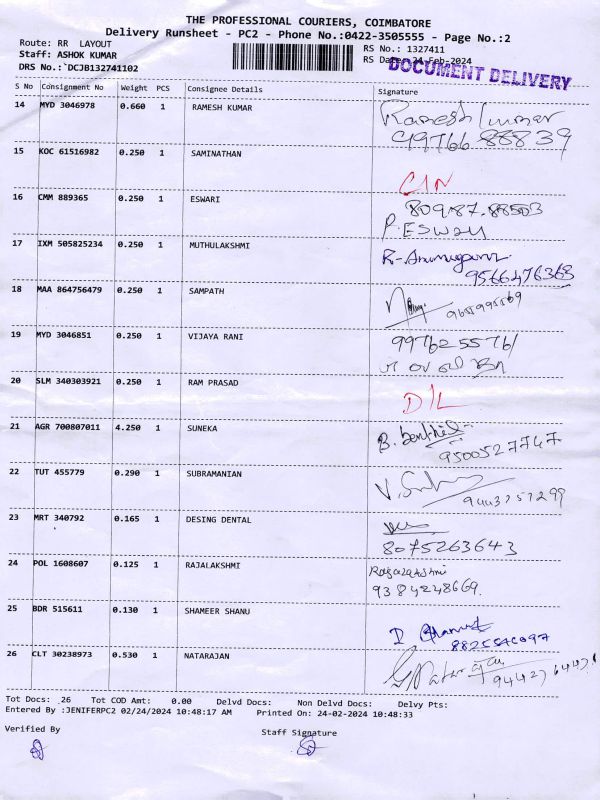 THE PROFESSIONAL COURIERS, COIMBATORE
Delivery Runsheet - PC2 - Phone No.:0422-3505555 - Page No.:2
Route: RR LAYOUT
Staff: ASHOK KUMAR
DRS No.:`DCJB132741102
RS No.: 1327411
RS Date: 24-Feb-2024
DOCUMENT DELIVERY
S No Consignment No Weight PCS Consignee Details Signature
14 MYD 3046978 0.660 1 RAMESH KUMAR Ramesh Kumar
99766 88839
15 KOC 61516982 0.250 1 SAMINATHAN
16 CMM 889365 0.250 1 ESWARI 80987-88503
P. ESWARI
17 IXM 505825234 0.250 1 MUTHULAKSHMI R-Arumugam
9566476363
18 MAA 864756479 0.250 1 SAMPATH
19 MYD 3046851 0.250 1 VIJAYA RANI 9976255761
20 SLM 340303921 0.250 1 RAM PRASAD D/L
21 AGR 700807011 4.250 1 SUNEKA B. Senthil
9500527747
22 TUT 455779 0.290 1 SUBRAMANIAN
9443757299
23 MRT 340792 0.165 1 DESING DENTAL
8075263643
24 POL 1608607 0.125 1 RAJALAKSHMI Rajalakshmi
9384248669.
25 BDR 515611 0.130 1 SHAMEER SHANU
26 CLT 30238973 0.530 1 NATARAJAN
Tot Docs: 26 Tot COD Amt: 0.00 Delvd Docs: Non Delvd Docs: Delvy Pts:
Entered By :JENIFERPC2 02/24/2024 10:48:17 AM Printed On: 24-02-2024 10:48:33
Verified By Staff Signature